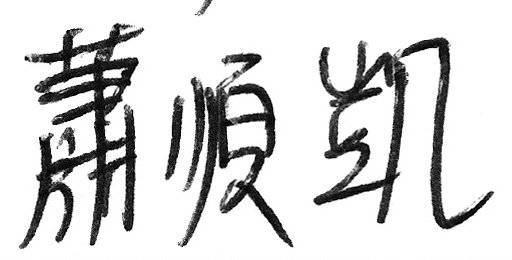 蕭順凱